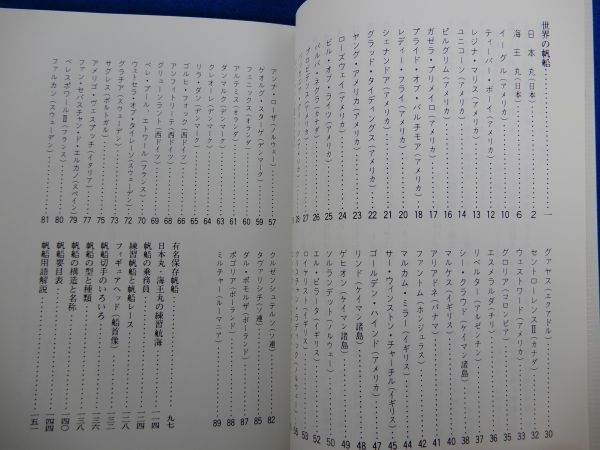 世界の帆船……一
日本丸(日本)……2
海王丸(日本)……6
イーグル(アメリカ)……10
ティーバー・ボーイ(アメリカ)……12
レジナ・マリス(アメリカ)……13
ユニコーン(アメリカ)……14
ピルグリム(アメリカ)……16
ガゼラ・プリメイロ(アメリカ)……17
プライド・オブ・バルチモア(アメリカ)……18
レディー・フライ(アメリカ)……20
シェナンドア(アメリカ)……21
グラッド・タイディングス(アメリカ)……22
ヤング・アメリカ(アメリカ)……23
ローズウェイ(アメリカ)……24
ビル・オブ・ライツ(アメリカ)……25
バルバ・ネグラ(カナダ)……26
グァヤス(エクアドル)……30
セントローレンスⅡ(カナダ)……32
ウェストワード(アメリカ)……33
グロリア(コロンビア)……34
エスメラルダ(チリ)……35
リベルター(アルゼンチン)……36
シー・クラウド(ケイマン諸島)……38
マルケス(イギリス)……40
アリアドネ(パナマ)……41
ファントム(ホンジュラス)……42
マルカム・ミラー(イギリス)……44
サー・ウィンストン・チャーチル(イギリス)……45
ゴールデン・ハインド(アメリカ)……47
リンド(ケイマン諸島)……48
ゲヒオン(ケイマン諸島)……49
ソルランデット(ノルウェー)……50
エル・ピラータ(イギリス)……52
ロイヤリスト(イギリス)……53
アンナ・ローザ(ノルウェー)……57
ゲオルク・スターゲ(デンマーク)……59
フェニックス(オランダ)……60
アルテミス(オランダ)……61
ダンマルク(デンマーク)……63
クレオネ(デンマーク)……64
リラ・ダン(デンマーク)……65
ゴルヒ・フォック(西ドイツ)……66
アンフィトリーテ(西ドイツ)……68
グリューンラント(西ドイツ)……69
ベレ・プール、エトワール(フランス)……70
ウェトセラ・オブ・タレーン(スウェーデン)……72
グラチア(スウェーデン)……73
サグレス(ポルトガル)……74
アメリゴ・ヴェスプッチ(イタリア)……75
ファン・セバスチャン・デ・エルカノ(スペイン)……77
ベレスポワールⅡ(フランス)……79
ファルカン(スウェーデン)……81
クルゼンシュテルン(ソ連)……82
タヴァリシチ(ソ連)……85
ダル・ポモルザ(ポーランド)……87
ポゴリア(ポーランド)……88
ミルチャー(ルーマニア)……89
有名保存帆船……九七
日本丸・海王丸の練習航海……一一四
帆船の乗務員……一二四
練習帆船と帆船レース……一二八
フィギュアヘッド(船首像)……一三二
帆船切手のいろいろ……一三六
帆船の型と種類……一三八
帆船の構造と名称……一四〇
帆船要目表……一四四
帆船用語解説……一五一